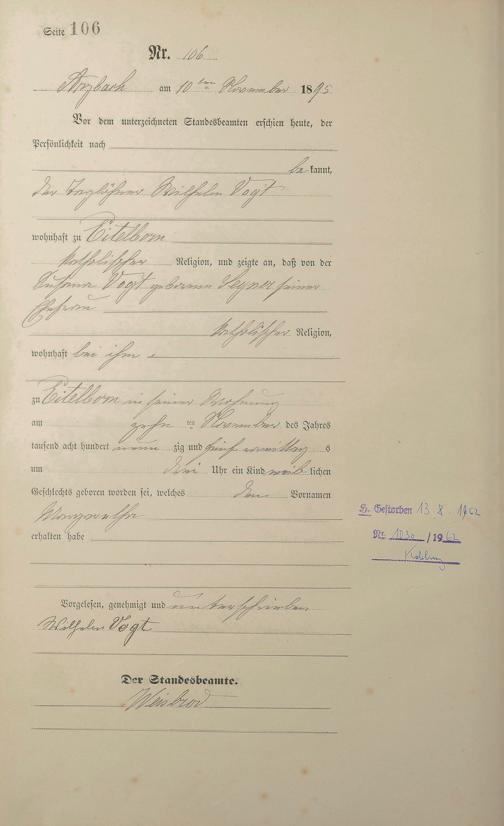 Seite 106
Nr. 106
Arzbach am 10ten November 1895
Vor dem unterzeichneten Standesbeamten erschien heute, der
Persönlichkeit nach
bekannt,
der Taglöhner Wilhelm Vogt
wohnhaft zu Eitelborn
katholischer Religion, und zeigte an, daß von der
Susanna Vogt geborenen seiner
Ehefrau
katholischer Religion,
wohnhaft bei ihm
zu Eitelborn in seiner Wohnung
am zehnten November des Jahres
tausend acht hundert neunzig und fünf vormittags
um drei Uhr ein Kind weiblichen
Geschlechts geboren worden sei, welches den Vornamen
Margaretha
erhalten habe
Vorgelesen, genehmigt und unterschrieben
Wilhelm Vogt
Der Standesbeamte.
Weisbrod
Gestorben 13.8.1962
Nr. 1030/1962
Koblenz